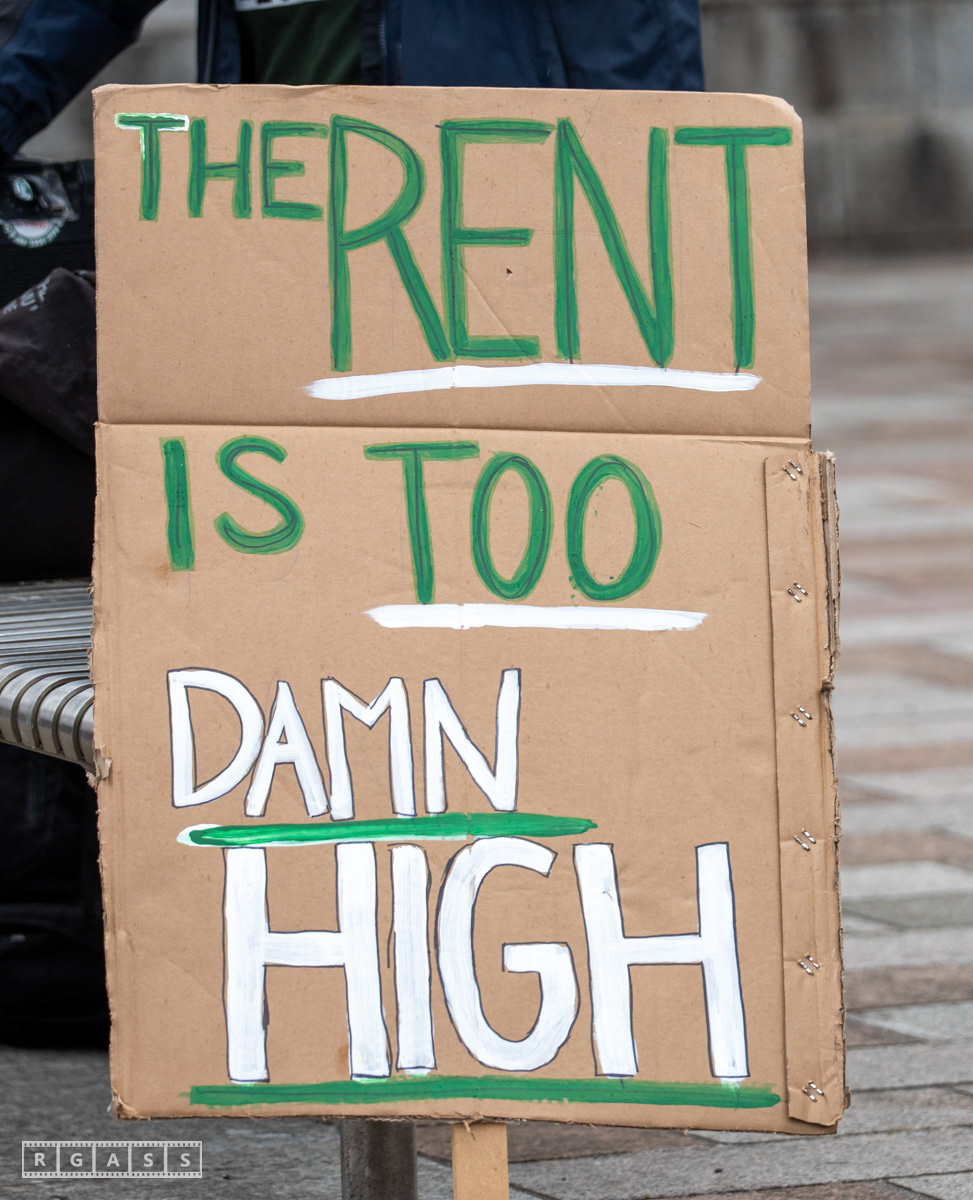 THE RENT
IS TOO
DAMN
HIGH
RGASS